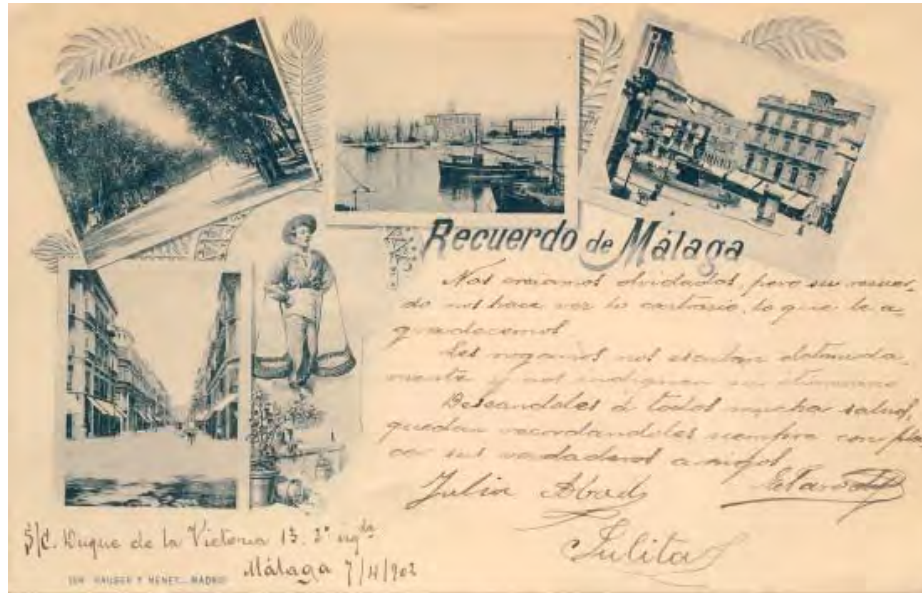 Recuerdo de Málaga
Nos creíamos olvidados, pero su recuer-
do nos hace ver lo contrario, lo que le a-
gradecemos.
Les rogamos nos escriban detenida
mente y nos indiquen su
Deseandoles á todos mucha salud,
quedan recordandoles siempre con pla
cer sus verdaderos amigos
Julia Abad
Julita
S/C. Duque de la Victoria 13. 2º izqda
Málaga 7/4/902
HAUSER Y MENET.-MADRID